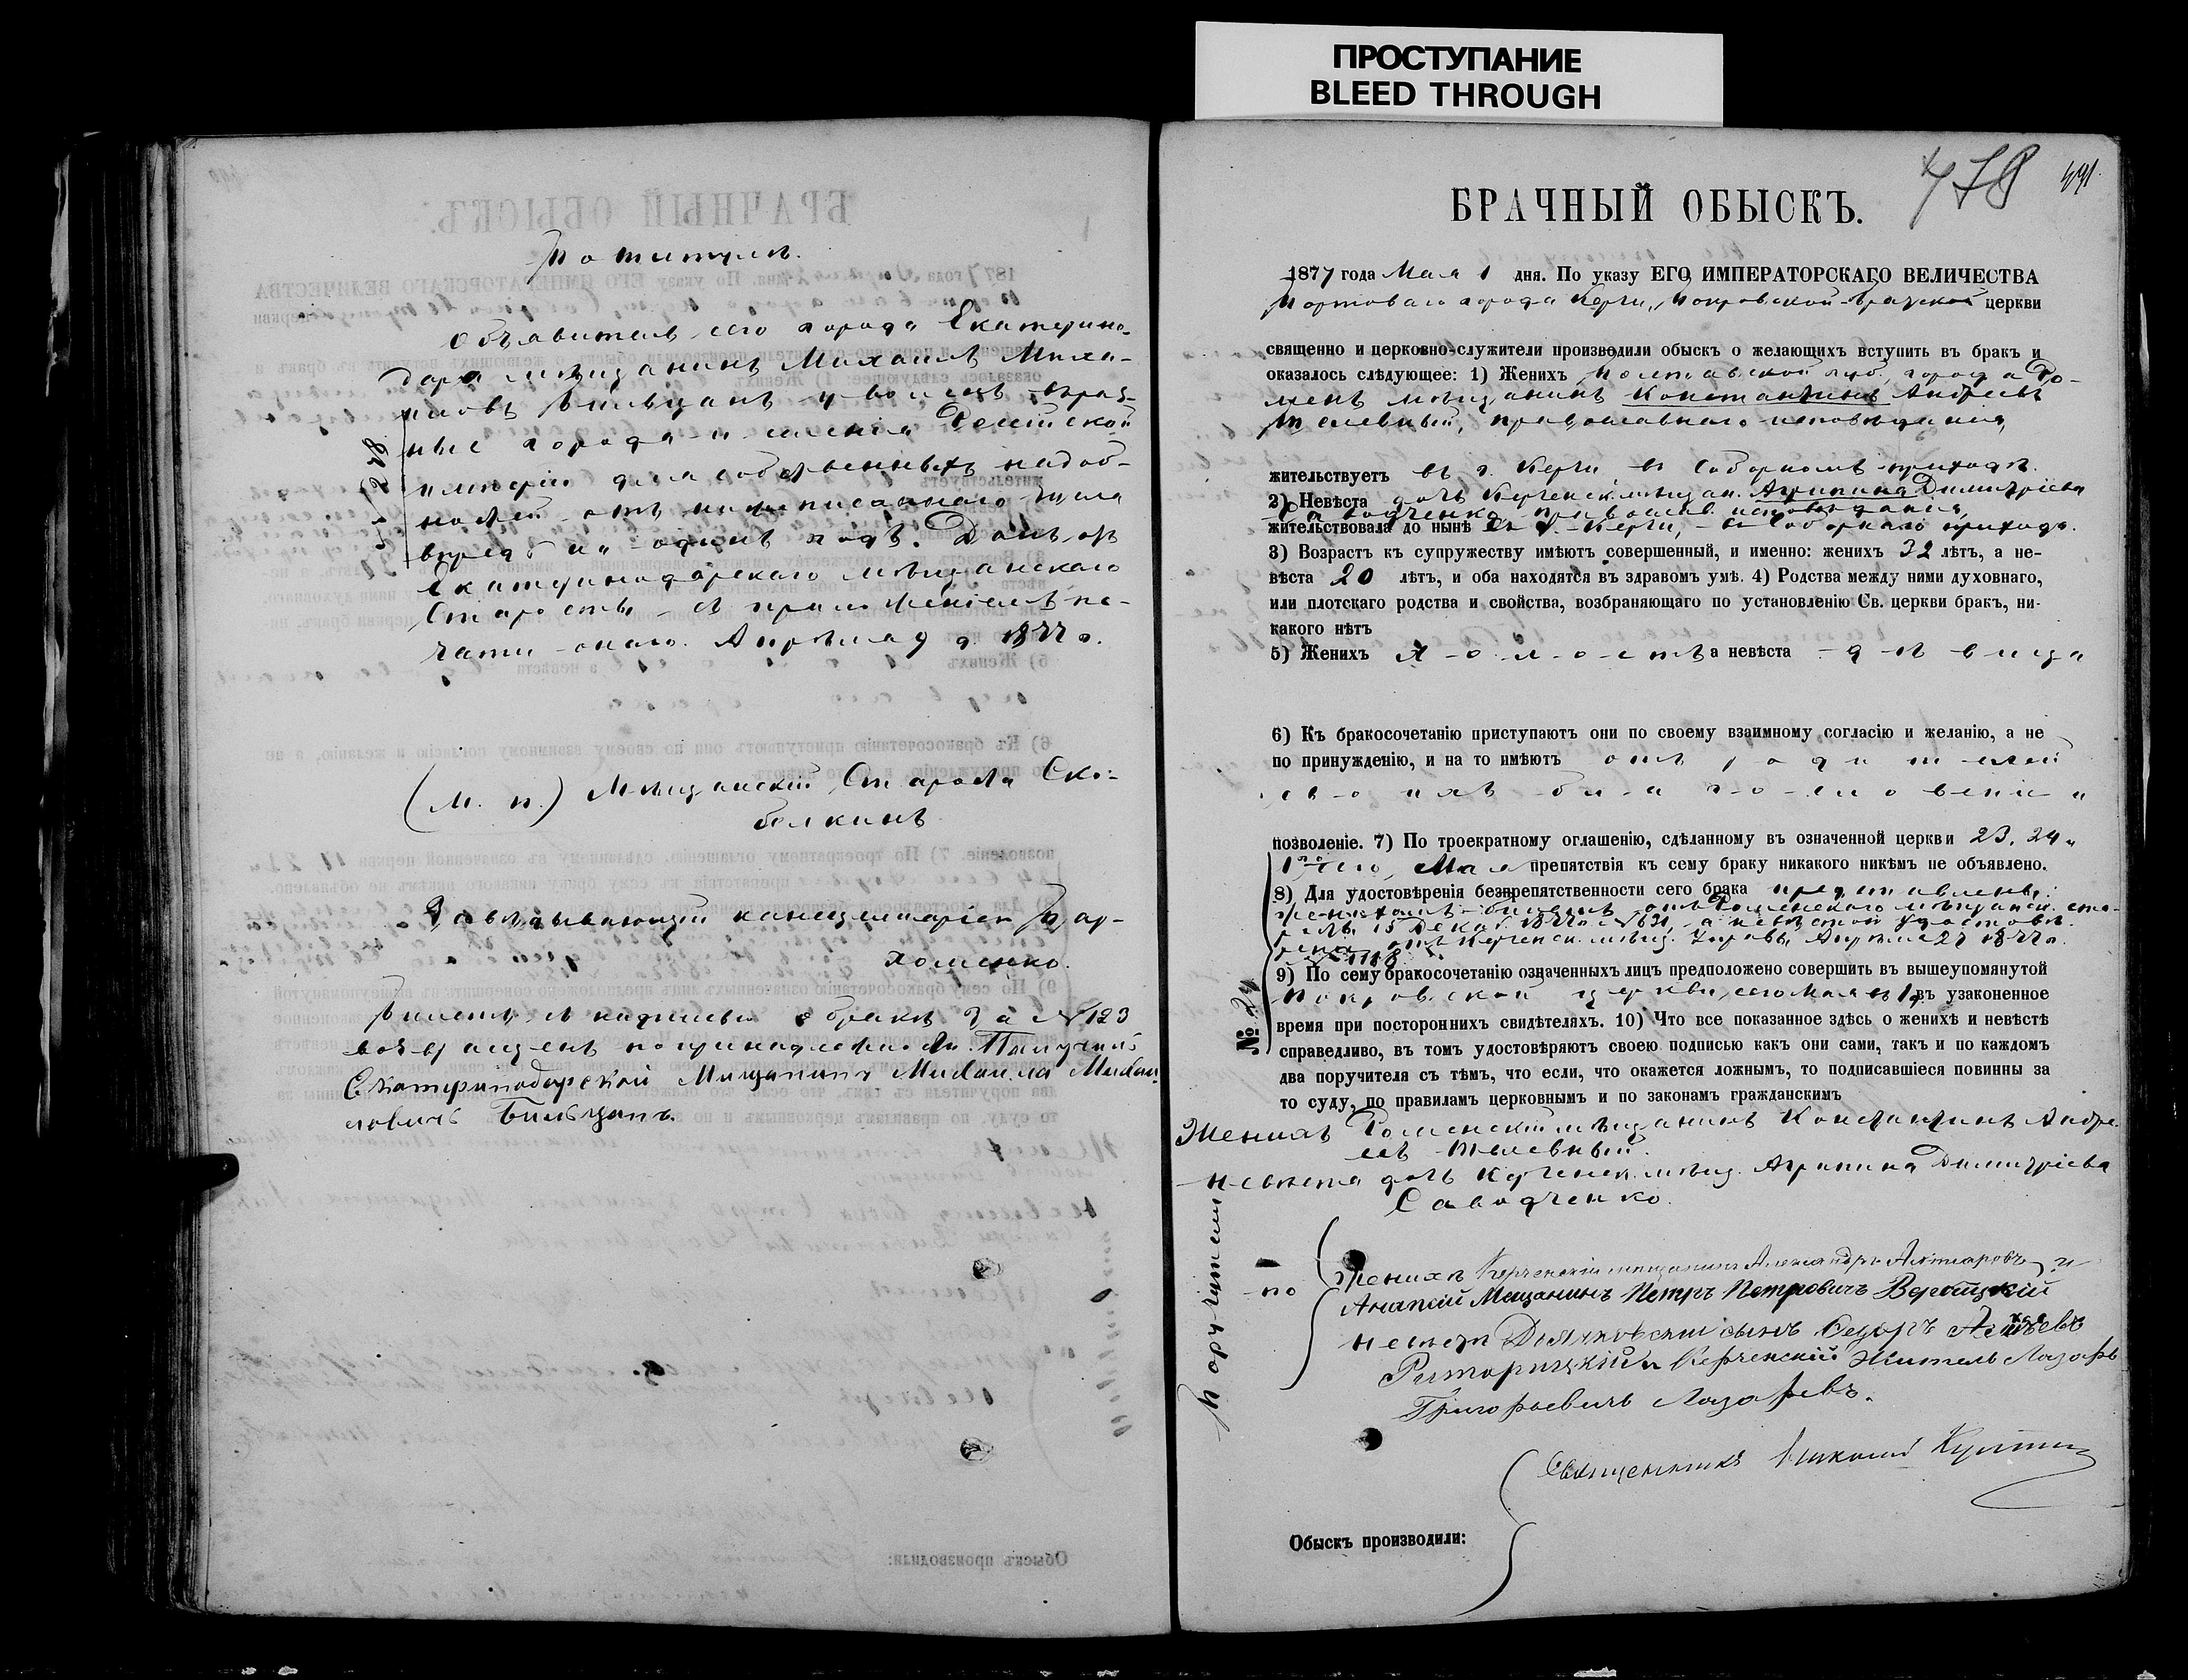 ПРОСТУПАНІЕ
BLEED THROUGH
По титулѣ.
Объявитель сего города Екатерино-
дара мѣщанинъ Михаилъ Михай-
ловъ уволенъ въ раз-
ные города и селенія Россійской
имперіи для собственныхъ надоб-
ностей отъ нижеписаннаго числа
впредь на одинъ годъ. Данъ отъ
Екатеринодарскаго мѣщанскаго
Старосты съ приложеніемъ пе-
чати онаго. Апрѣля 9 д. 1877 г.
(М. п.) Мѣщанскій Староста Ско-
болкинъ
Завѣдывающій канцеляріею Пар-
хоменко.
Билетъ съ надписью о бракѣ за № 123
возвращенъ по принадлежности. Получилъ
Екатеринодарскій Мищанинъ Михаила Михаи-
ловичъ Бильцанъ.
478 491.
БРАЧНЫЙ ОБЫСКЪ.
1877 года Мая 1 дня. По указу ЕГО ИМПЕРАТОРСКАГО ВЕЛИЧЕСТВА
Портоваго города Керчи, Покровской церкви
священно и церковно-служители производили обыскъ о желающихъ вступить въ бракъ и
оказалось слѣдующее: 1) Женихъ Полтавской губ. города Ро-
менъ мѣщанинъ Константинъ Андреевъ
православнаго исповѣданія,
жительствуетъ въ г. Керчи въ Соборномъ приходѣ.
2) Невѣста дочь Керченск. мѣщан. Агрипина Димитріева
Савадченко, православ. исповѣданія,
жительствовала до нынѣ въ г. Керчи, Соборнаго прихода.
3) Возрастъ къ супружеству имѣютъ совершенный, и именно: женихъ 32 лѣтъ, а не-
вѣста 20 лѣтъ, и оба находятся въ здравомъ умѣ. 4) Родства между ними духовнаго,
или плотскаго родства и свойства, возбраняющаго по установленію Св. церкви бракъ, ни-
какого нѣтъ
5) Женихъ холостъ а невѣста дѣвица
6) Къ бракосочетанію приступаютъ они по своему взаимному согласію и желанію, а не
по принужденію, и на то имѣютъ отъ родителей
своихъ благословеніе и
позволеніе. 7) По троекратному оглашенію, сдѣланному въ означенной церкви 23, 24 и
1го сего Мая препятствія къ сему браку никакого никѣмъ не объявлено.
8) Для удостовѣренія безпрепятственности сего брака представлены:
женихомъ билетъ отъ Роменскаго мѣщанск. ста-
а невѣстой удостовѣ-
реніе отъ Керченск. мѣщ. Управы, Апрѣля 27 1877 г.
9) По сему бракосочетанію означенныхъ лицъ предположено совершить въ вышеупомянутой
Покровской церкви, сего Мая 1 въ узаконенное
время при постороннихъ свидѣтеляхъ. 10) Что все показанное здѣсь о женихѣ и невѣстѣ
справедливо, въ томъ удостовѣряютъ своею подписью какъ они сами, такъ и по каждомъ
два поручителя съ тѣмъ, что если, что окажется ложнымъ, то подписавшіеся повинны за
то суду, по правиламъ церковнымъ и по законамъ гражданскимъ
Женихъ Роменскій мѣщанинъ Константинъ Андре-
евъ
Невѣста дочь Керченск. мѣщ. Агрипина Димитріева
Савадченко.
Поручители
по
женихѣ Керченскій мещанинъ Александръ Ахтыаровъ и
Анапскій Мещанинъ Петръ Петровичъ Вербицкій
невѣсте сынъ Федоръ
и Керченскій Житель Лазарь
Григорьевичъ Лазаревъ.
Священникъ Николай
Обыскъ производили: